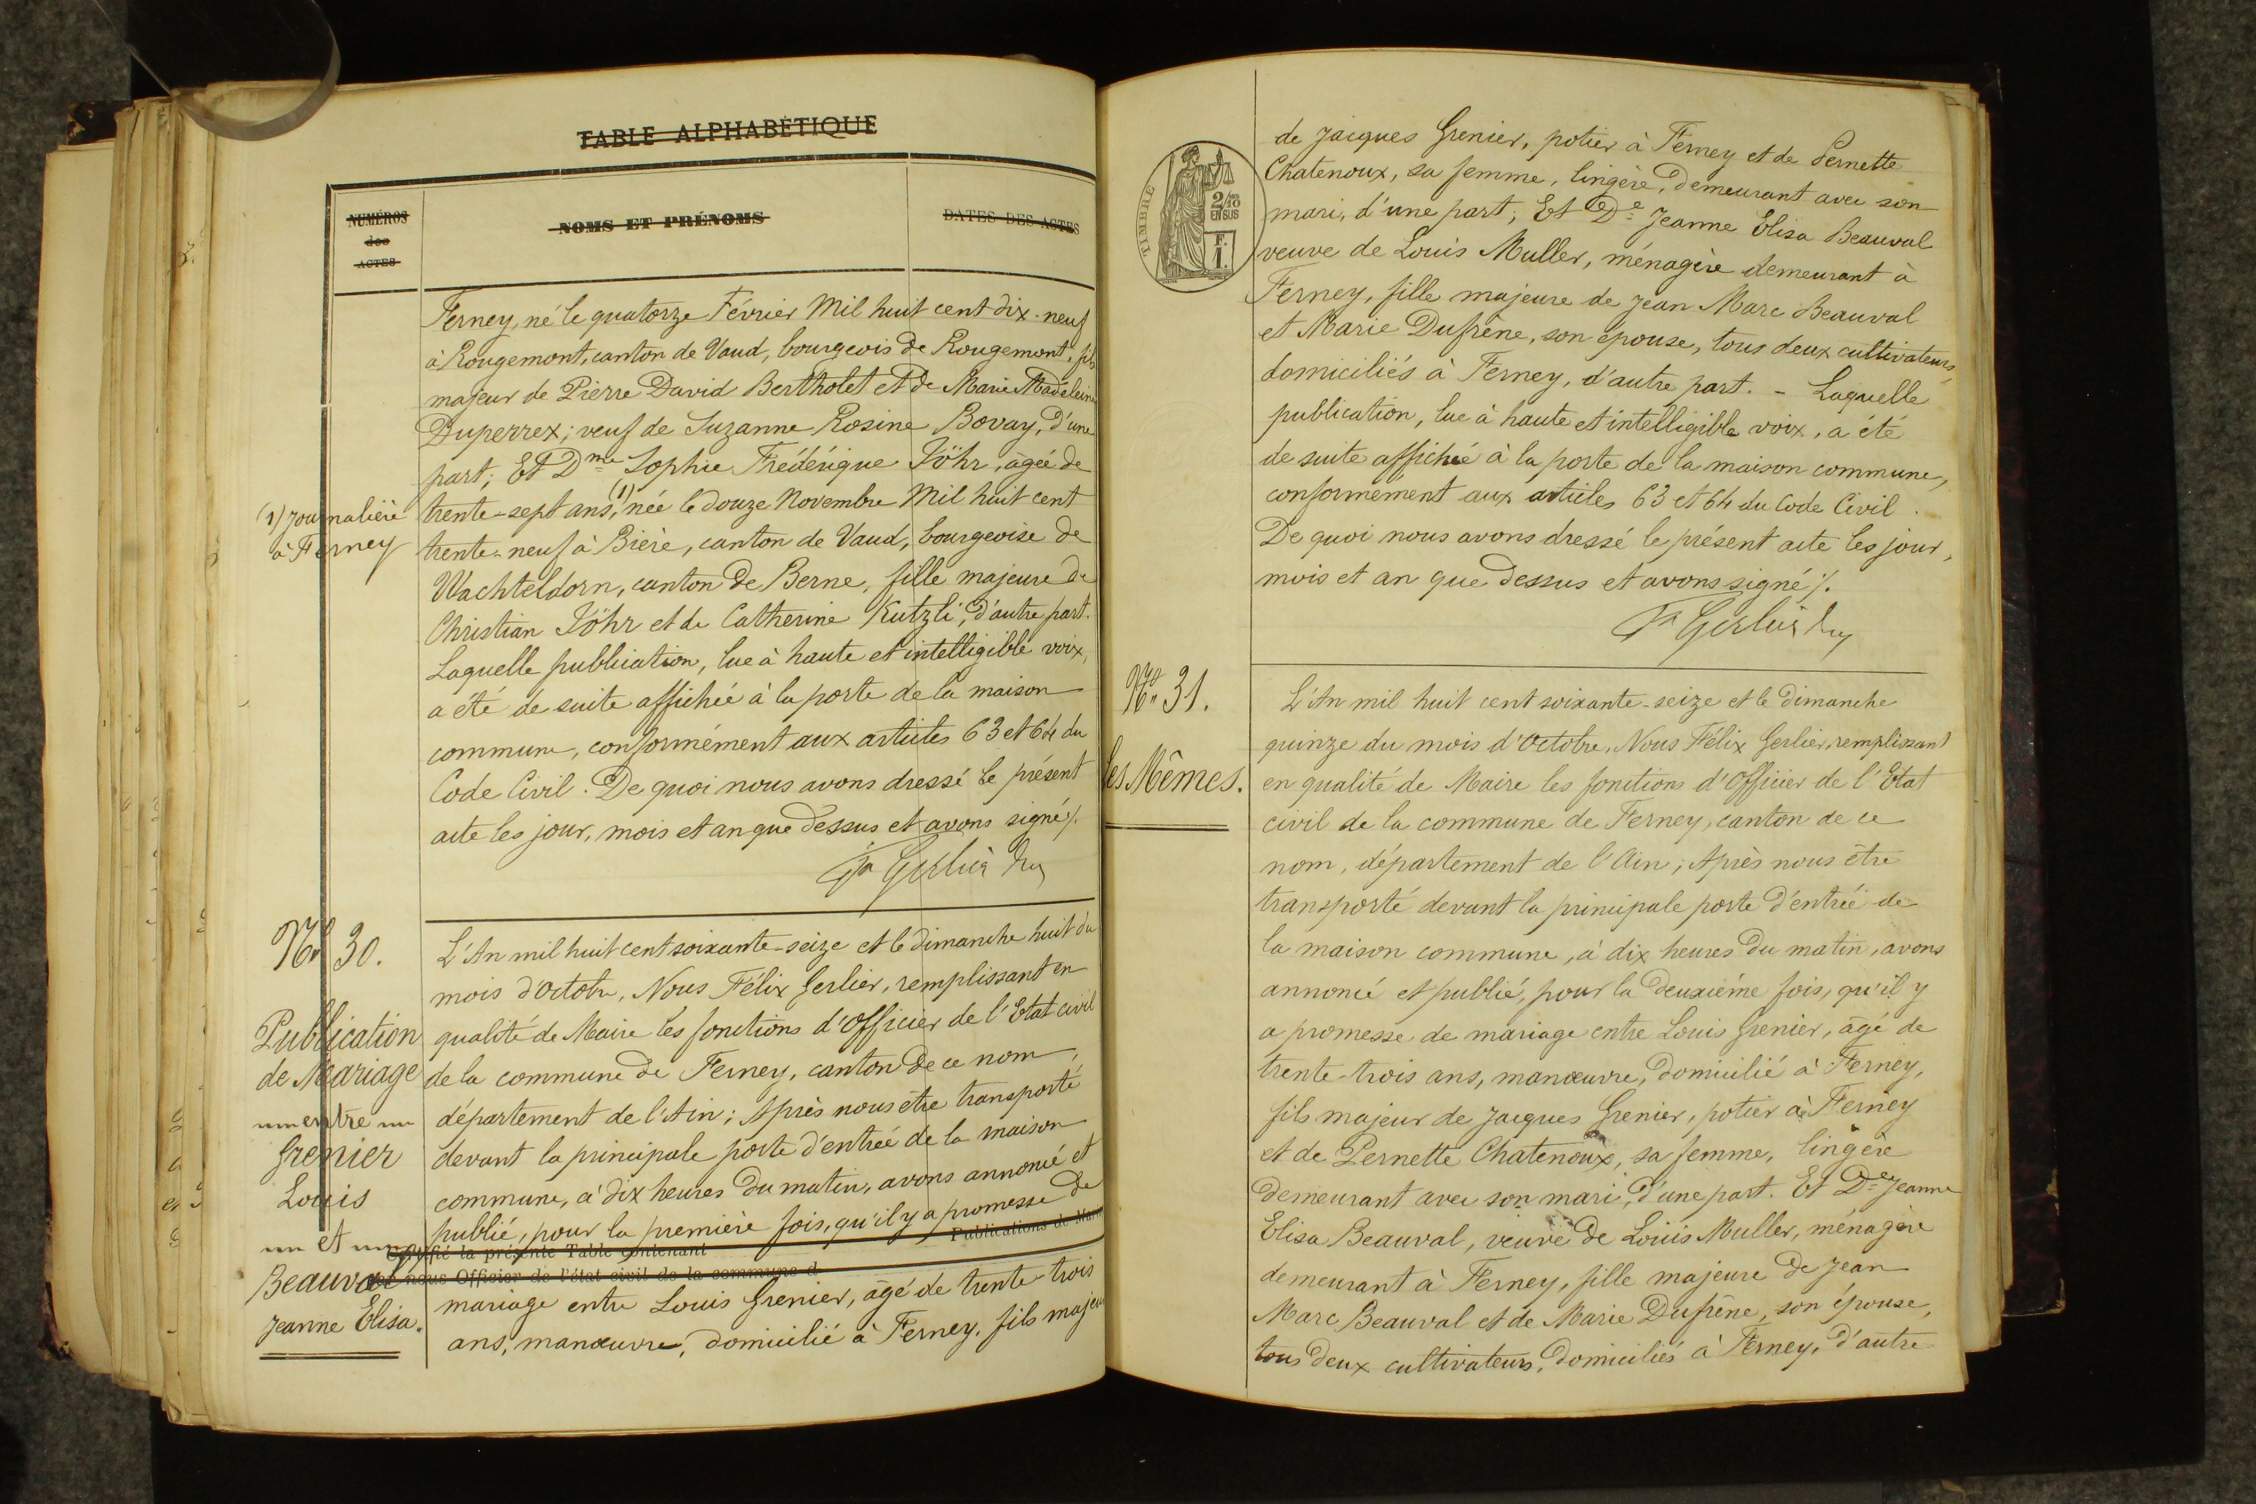 TABLE ALPHABÉTIQUE
NUMÉROS
des
ACTES
NOMS ET PRÉNOMS
DATES DES ACTES
Ferney, né le quatorze Février Mil huit cent dix-neuf
à Rougemont, canton de Vaud, bourgeois de Rougemont, fils
majeur de Pierre David Bertholet et de Marie Madeleine
Duperrex; veuf de Suzanne Rosine Bovay, d'une
part; Et Dme Sophie Frédérique Jöhr, âgée de
trente-sept ans, (1) née le douze Novembre Mil huit cent
(1) journalière
à Ferney
trente-neuf à Bière, canton de Vaud, bourgeoise de
Wachteldorn, canton de Berne, fille majeure de
Christian Jöhr et de Catherine Kutzli, d'autre part.
Laquelle publication, lue à haute et intelligible voix,
a été de suite affichée à la porte de la maison
commune, conformément aux articles 63 et 64 du
Code Civil. De quoi nous avons dressé le présent
acte les jour, mois et an que dessus et avons signé ./.
Fx Gerlier
No 30.
Publication
de Mariage
entre
Grenier
Louis
et
Beauval
Jeanne Elisa.
L'An mil huit cent soixante-seize et le dimanche huit du
mois d'Octobre, Nous Félix Gerlier, remplissant en
qualité de Maire les fonctions d'Officier de l'Etat civil
de la commune de Ferney, canton de ce nom,
département de l'Ain; Après nous être transporté
devant la principale porte d'entrée de la maison
commune, à dix heures du matin, avons annoncé et
publié, pour la première fois, qu'il y a promesse de
Certifié la présente Table contenant
Publications de Mar
nous Officier de l'état civil de la commune d
mariage entre Louis Grenier, âgé de trente-trois
ans, manœuvre, domicilié à Ferney, fils majeur
TIMBRE
2/10
EN SUS
F.
1.
de Jacques Grenier, potier à Ferney et de Pernette
Chatenoux, sa femme, lingère, demeurant avec son
mari, d'une part; Et De Jeanne Elisa Beauval
veuve de Louis Muller, ménagère demeurant à
Ferney, fille majeure de Jean Marc Beauval
et Marie Dufrêne, son épouse, tous deux cultivateurs,
domiciliés à Ferney, d'autre part. - Laquelle
publication, lue à haute et intelligible voix, a été
de suite affichée à la porte de la maison commune,
conformément aux articles 63 et 64 du Code Civil.
De quoi nous avons dressé le présent acte les jour,
mois et an que dessus et avons signé ./.
Fx Gerlier
No 31.
Les Mêmes.
L'An mil huit cent soixante-seize et le dimanche
quinze du mois d'Octobre, Nous Félix Gerlier, remplissant
en qualité de Maire les fonctions d'Officier de l'Etat
civil de la commune de Ferney, canton de ce
nom, département de l'Ain; Après nous être
transporté devant la principale porte d'entrée de
la maison commune, à dix heures du matin, avons
annoncé et publié, pour la deuxième fois, qu'il y
a promesse de mariage entre Louis Grenier, âgé de
trente-trois ans, manœuvre, domicilié à Ferney,
fils majeur de Jacques Grenier, potier à Ferney
et de Pernette Chatenoux, sa femme, lingère
demeurant avec son mari, d'une part. Et De Jeanne
Elisa Beauval, veuve de Louis Muller, ménagère
demeurant à Ferney, fille majeure de Jean
Marc Beauval et de Marie Dufrêne, son épouse,
tous deux cultivateurs, domiciliés à Ferney, d'autre